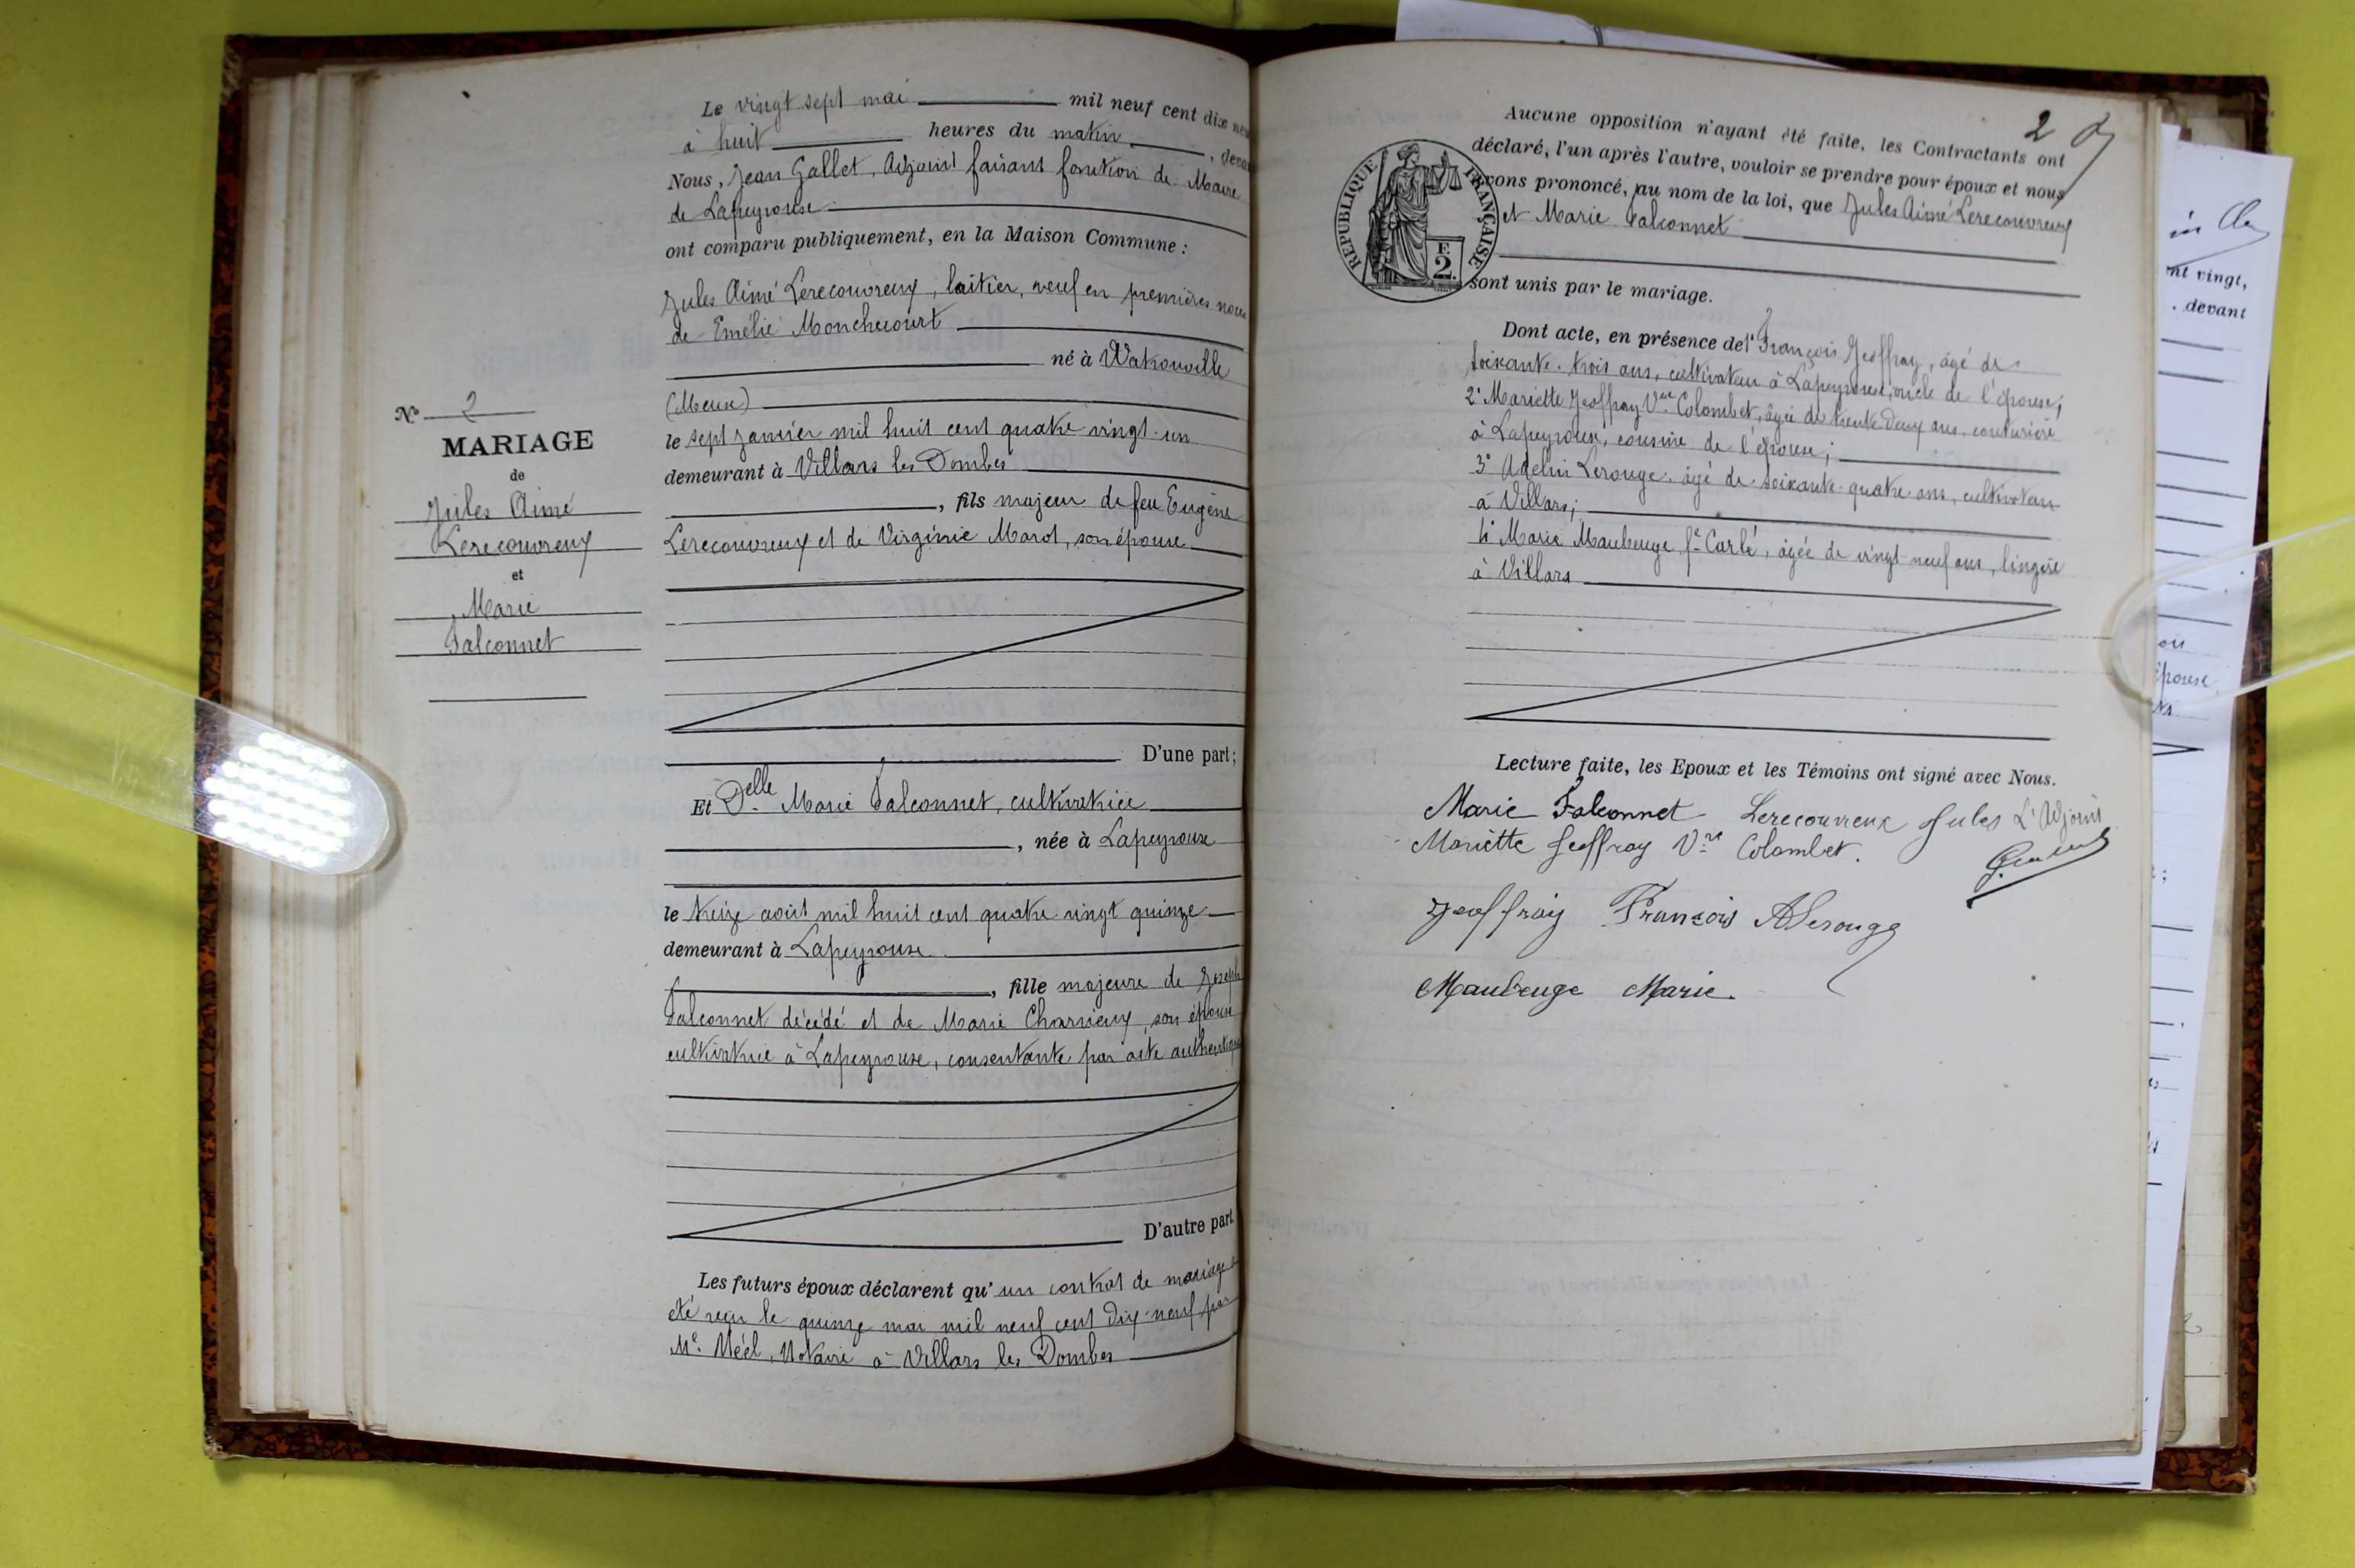 Le vingt sept mai mil neuf cent dix neu
à huit heures du matin, deva
Nous, Jean Gallet, Adjoint faisant fonction de Maire
de Lapeyrouse
ont comparu publiquement, en la Maison Commune :
Jules Aimé Lerecouvreux, laitier, veuf en premières noces
de Emélie Monchecourt
né à Watronville
(Meuse)
le sept janvier mil huit cent quatre vingt-un
demeurant à Villars les Dombes
, fils majeur de feu Eugène
Lerecouvreux et de Virginie Marot, son épouse
N° 2
MARIAGE
de
Jules Aimé
Lerecouvreux
et
Marie
Falconnet
D'une part ;
Et Delle Marie Falconnet, cultivatrice
, née à Lapeyrouse
le treize août mil huit cent quatre vingt quinze
demeurant à Lapeyrouse
, fille majeure de Joseph
Falconnet décédé et de Marie Charrieux, son épouse
cultivatrice à Lapeyrouse, consentante par acte authentique
D'autre part
Les futurs époux déclarent qu'un contrat de mariage a
été reçu le quinze mai mil neuf cent dix-neuf par
Me. Méél, Notaire à Villars les Dombes
2
Aucune opposition n'ayant été faite, les Contractants ont
déclaré, l'un après l'autre, vouloir se prendre pour époux et nous
avons prononcé, au nom de la loi, que Jules Aimé Lerecouvreux
et Marie Falconnet
sont unis par le mariage.
REPUBLIQUE FRANÇAISE
F.
2.
Dont acte, en présence de 1° François Geoffray, âgé de
soixante-trois ans, cultivateur à Lapeyrouse, oncle de l'épouse ;
2° Mariette Geoffray Vve Colombet, âgée de trente-deux ans, couturière
à Lapeyrouse, cousine de l'épouse ;
3° Adelin Lerouge, âgé de soixante-quatre ans, cultivateur
à Villars ;
4° Marie Maubeuge fe Carlé, âgée de vingt-neuf ans, lingère
à Villars
Lecture faite, les Epoux et les Témoins ont signé avec Nous.
Marie Falconnet Lerecouvreux Jules L'Adjoint
Mariette Geoffray Vve Colombet.
Geoffray François A Lerouge
Maubeuge Marie.
nt vingt,
devant
épouse